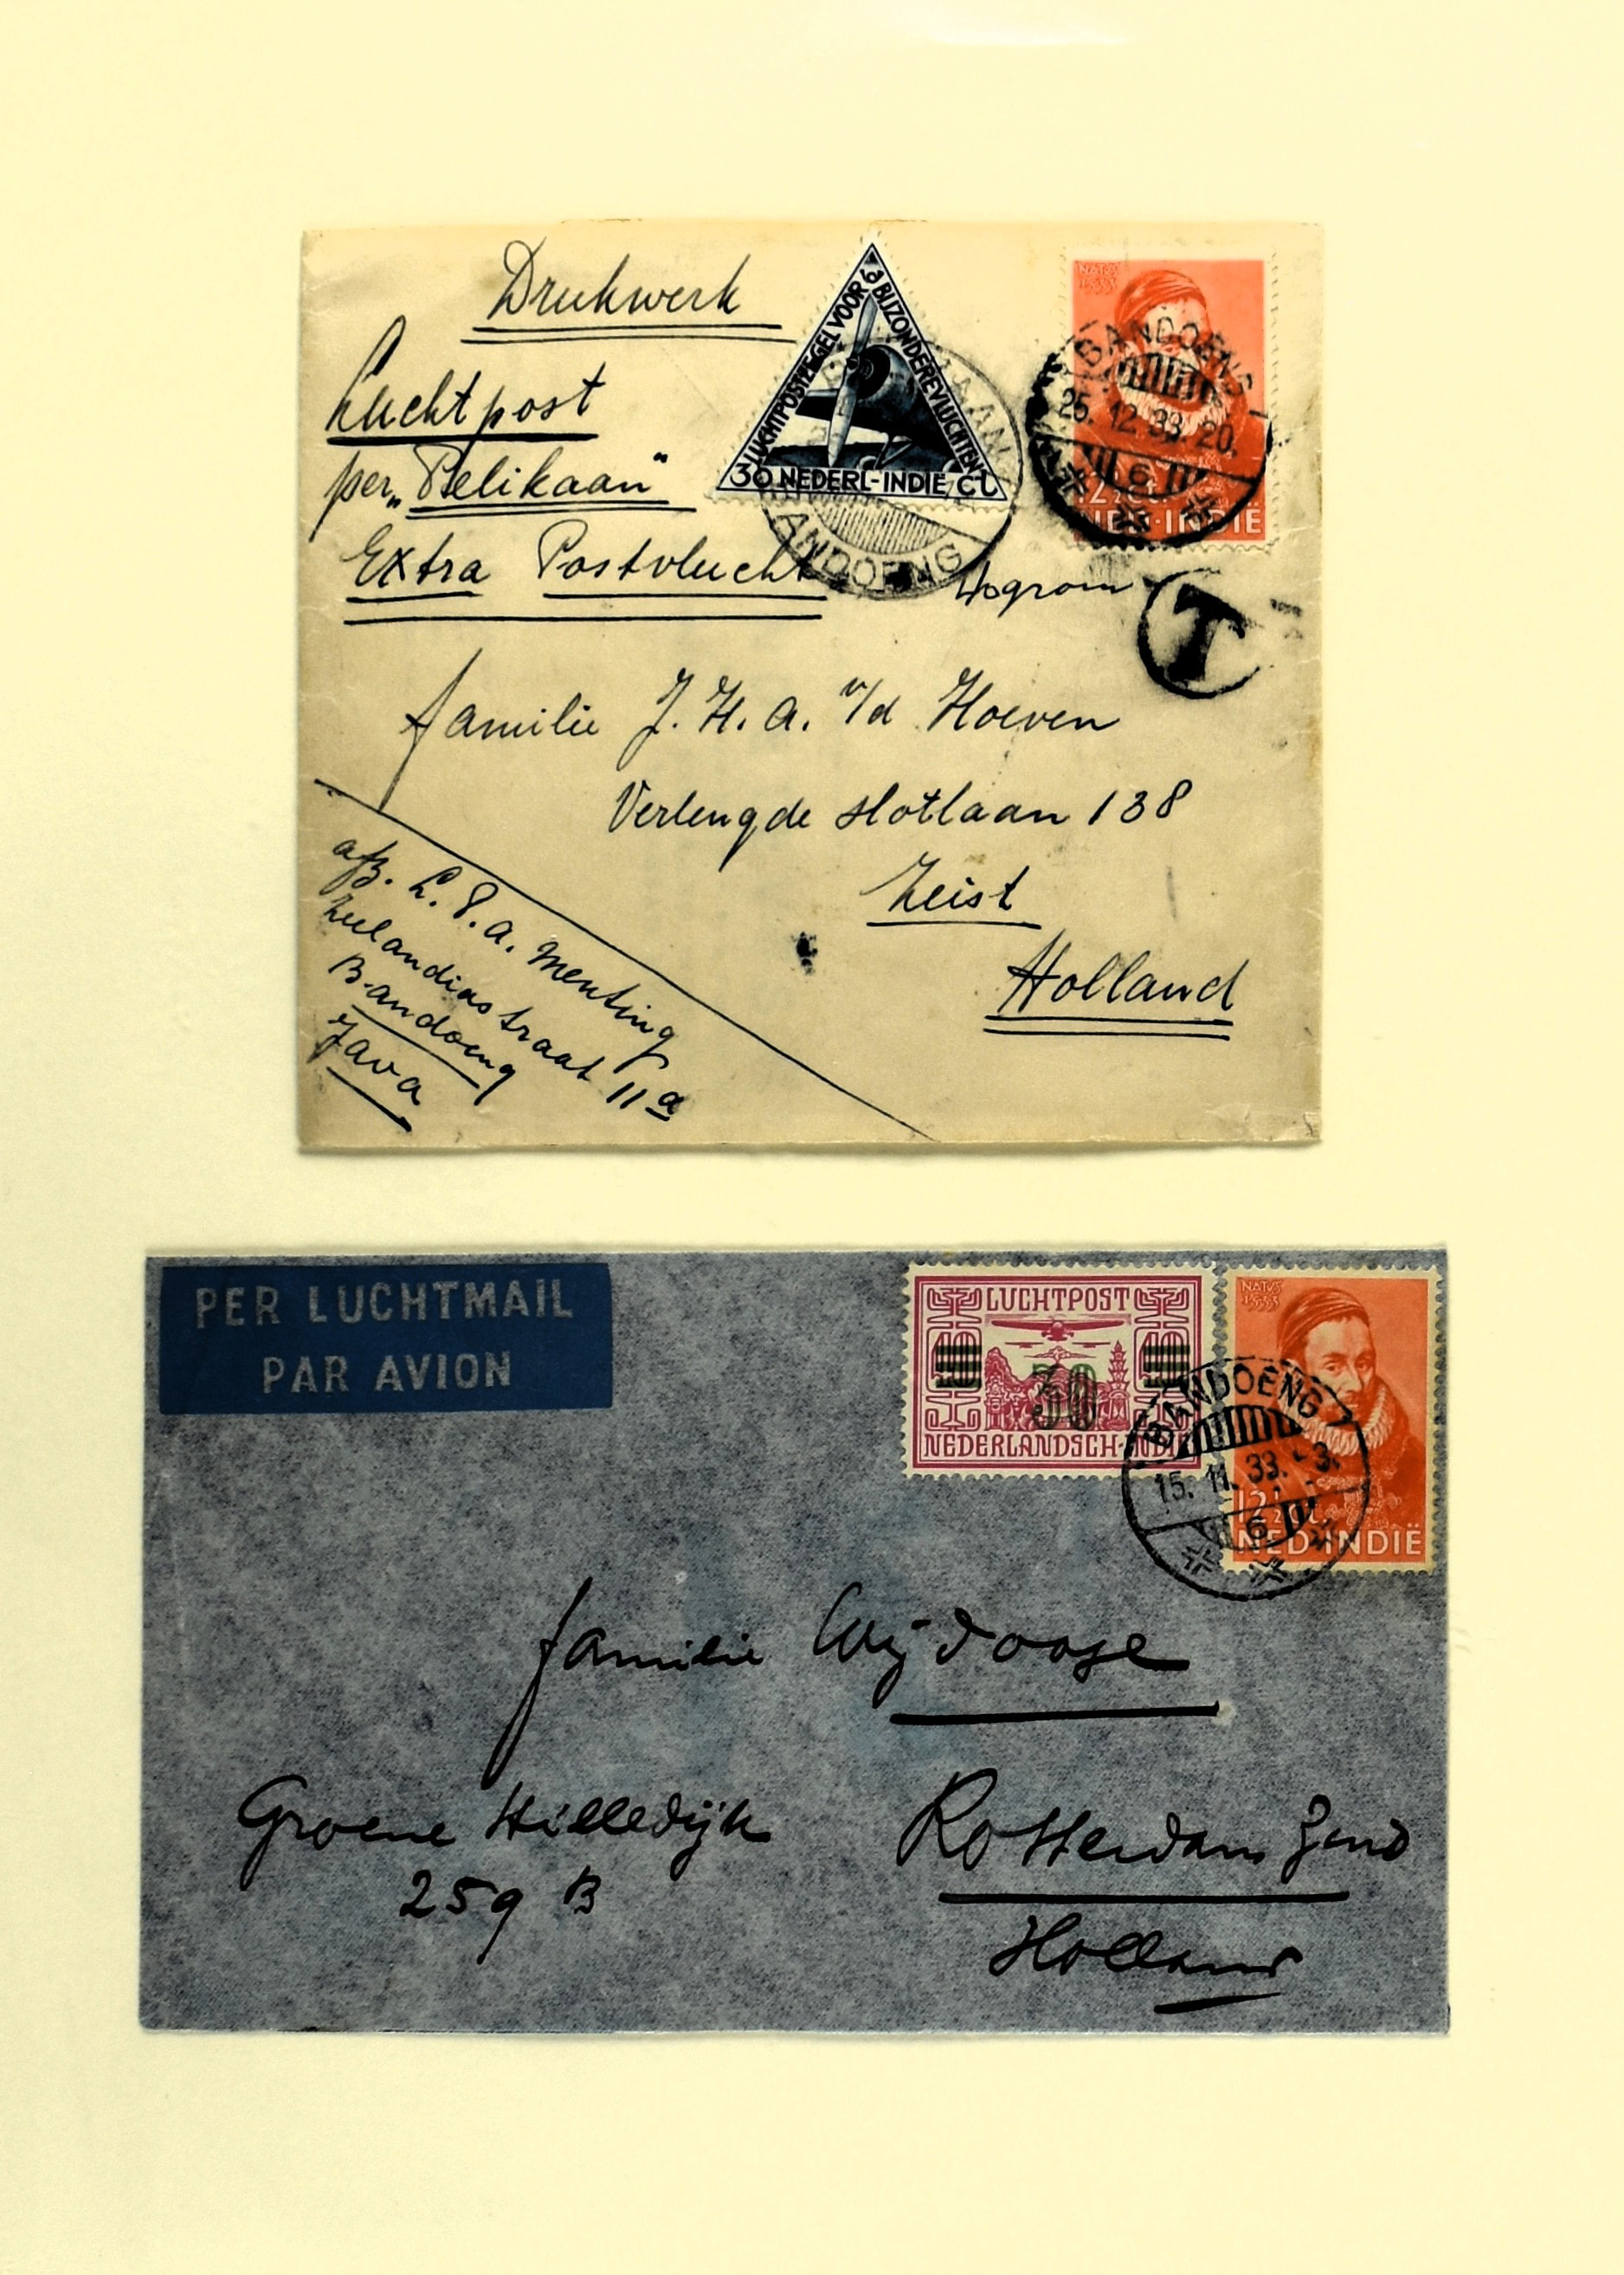 Drukwerk
Luchtpost
per „Pelikaan"
Extra Postvlucht
LUCHTPOSTZEGEL VOOR BIJZONDERE VLUCHTEN
30 NEDERL-INDIE Ct
ANDOENG
NATUS
1533
BANDOENG
25.12.33.20.
6
NED-INDIË
T
familie J. H. A. v/d Hoeven
Verlengde Slotlaan 138
Zeist
Holland
afz. L. P. A. Menting
Zeelandiastraat 11a
Bandoeng
Java
PER LUCHTMAIL
PAR AVION
LUCHTPOST
40 40
30
NEDERLANDSCH-INDIË
NATUS
1533
BANDOENG
15.11.33.-3.
6
12½ ct
NED-INDIË
familie
Groene Hilledijk
259 B
Rotterdam Zuid
Holland